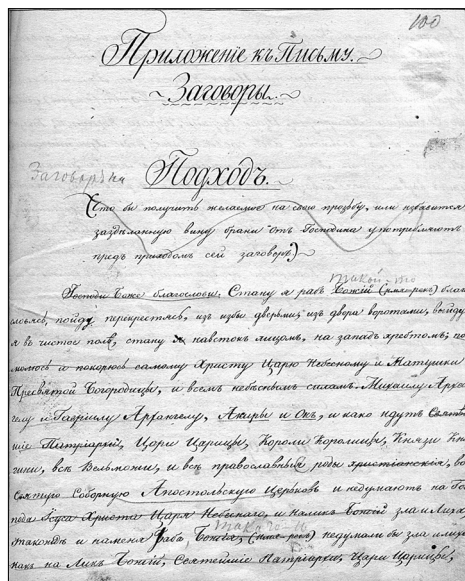 100
Приложеніе къ Письму.
Заговоры.
Заговоръ на
Подходъ.
(Что бы получить желаемое на свою прозьбу, или избавится
заздѣланную вину брани отъ Господина употреблять
предъ приходомъ сей заговоръ)
такой-то
Господи Боже благослови. Стану я рабъ Божій (имя рек) благо
словлясь, пойду перекрестясь, изъ избы дверьми, изъ двора воротами, выйду
я въ чистое поле, стану на востокъ лицомъ, на западъ хребтомъ, по
молюсь и покорюсь самому Христу Царю Небесному и Матушки
Пресвятой Богородицы, и всемъ небѣснымъ силам. Михаилу Арха
гелу и Гавриилу Архангелу, и како идутъ Святѣй
шіе Патріархи, Цари Царицы, Короли Королицы, Князи Кня
гини, всѣ Вельможи, и всѣ православные роды христіанскія, во
Святую Соборную Апостольскую Церьковь и недумаютъ на Гос
пода Ісуса Христа Царя Небеснаго, и наликъ Божій зла и лиха
такожде и наменя раба Божія, (имя рек) недумали бы зла и лиха
такаго-то
какъ на Ликъ Божій, Святейшіе Патріархи, Цари Царицы,